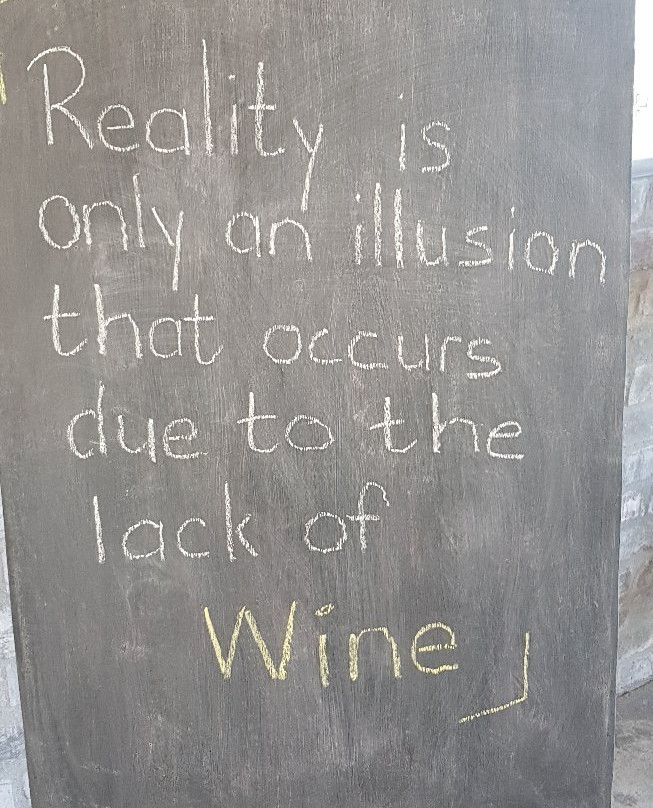 Reality is
only an illusion
that occurs
due to the
lack of
Wine